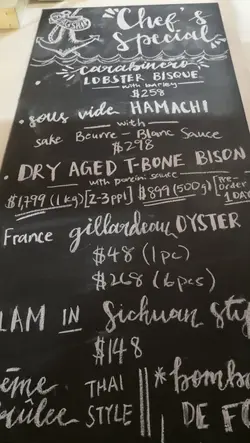 "Chef's
Special"
carabinero
LOBSTER BISQUE
$258
• sous vide HAMACHI
with
sake Beurre-Blanc Sauce
$298
• DRY AGED T-BONE BISON
with porcini sauce
$1,799 (1kg) [2-3ppl] $899 (500g) [Pre-Order 1 DAY
France gillardeau OYSTER
$48 (1pc)
$268 (6pcs)
LAM IN Sichuan sty
$148
ème THAI || *bomba
rûlée STYLE || DE F